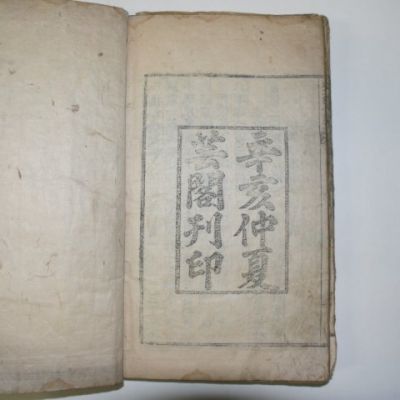 辛亥仲夏
芸閣刋印